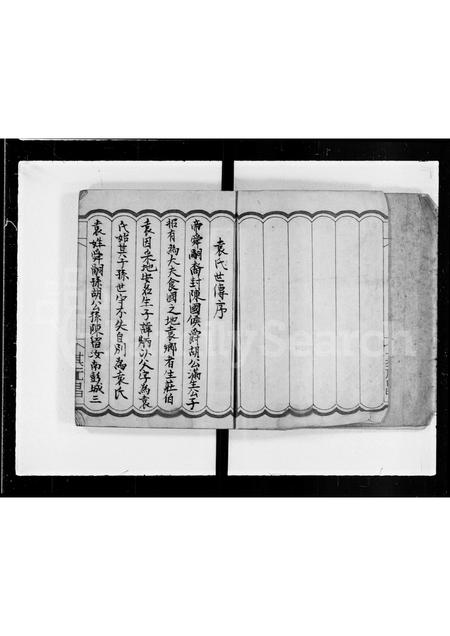 袁氏世傳序
帝舜嗣裔封陳國侯爵胡公滿生公子
招有為大夫食國之地袁鄉者生莊伯
袁因采地安名生子諱以父字為袁
氏始其子孫世守不失自別為袁氏
袁姓舜嗣孫胡公孫陳留汝南彭城三
其江昌
FamilySearch